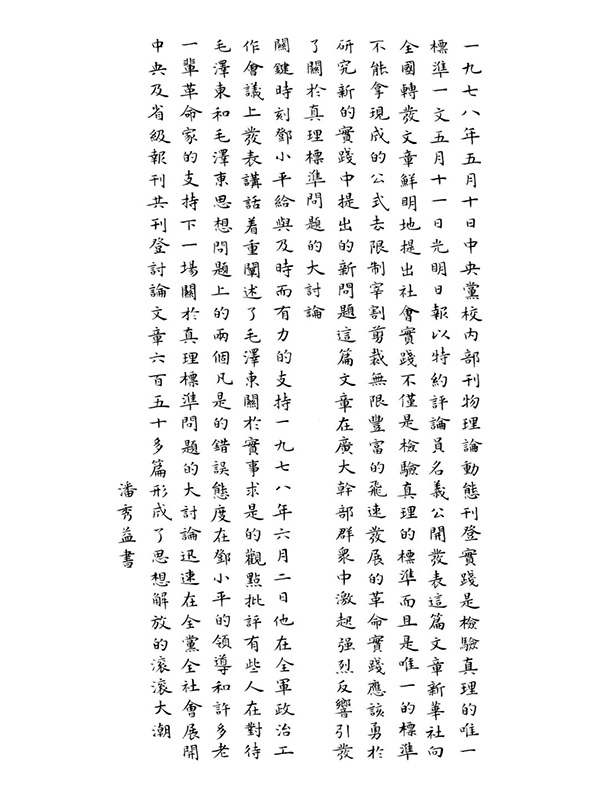 一九七八年五月十日中央黨校內部刊物理論動態刊登實踐是檢驗真理的唯一
標準一文五月十一日光明日報以特約評論員名義公開發表這篇文章新華社向
全國轉發文章鮮明地提出社會實踐不僅是檢驗真理的標準而且是唯一的標準
不能拿現成的公式去限制宰割剪裁無限豐富的飛速發展的革命實踐應該勇於
研究新的實踐中提出的新問題這篇文章在廣大幹部群衆中激起强烈反響引發
了關於真理標準問題的大討論
關鍵時刻鄧小平給與及時而有力的支持一九七八年六月二日他在全軍政治工
作會議上發表講話着重闡述了毛澤東關於實事求是的觀點批評有些人在對待
毛澤東和毛澤東思想問題上的兩個凡是的錯誤態度在鄧小平的領導和許多老
一輩革命家的支持下一場關於真理標準問題的大討論迅速在全黨全社會展開
中央及省級報刊共刊登討論文章六百五十多篇形成了思想解放的滾滾大潮
潘秀益書